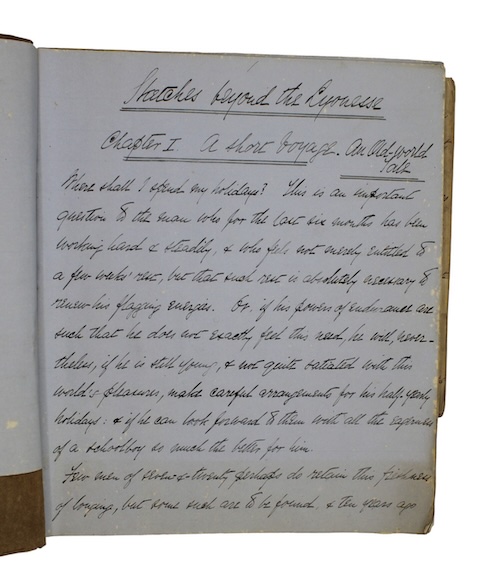 Sketches beyond the Lyonesse
Chapter I   A short Voyage. An Old-World
Tale
Where shall I spend my holidays? This is an important
question to the man who for the last six months has been
working hard & steadily, & who feels not merely entitled to
a few weeks' rest, but that such rest is absolutely necessary to
renew his flagging energies. Or, if his powers of endurance are
such that he does not exactly feel this need, he will, never-
theless, if he is still young, & not quite satiated with this
world's pleasures, make careful arrangements for his half-yearly
holidays: & if he can look forward to them with all the eagerness
of a schoolboy so much the better for him.
Few men of seven & twenty perhaps do retain this freshness
of longing, but some such are to be found & ten years ago